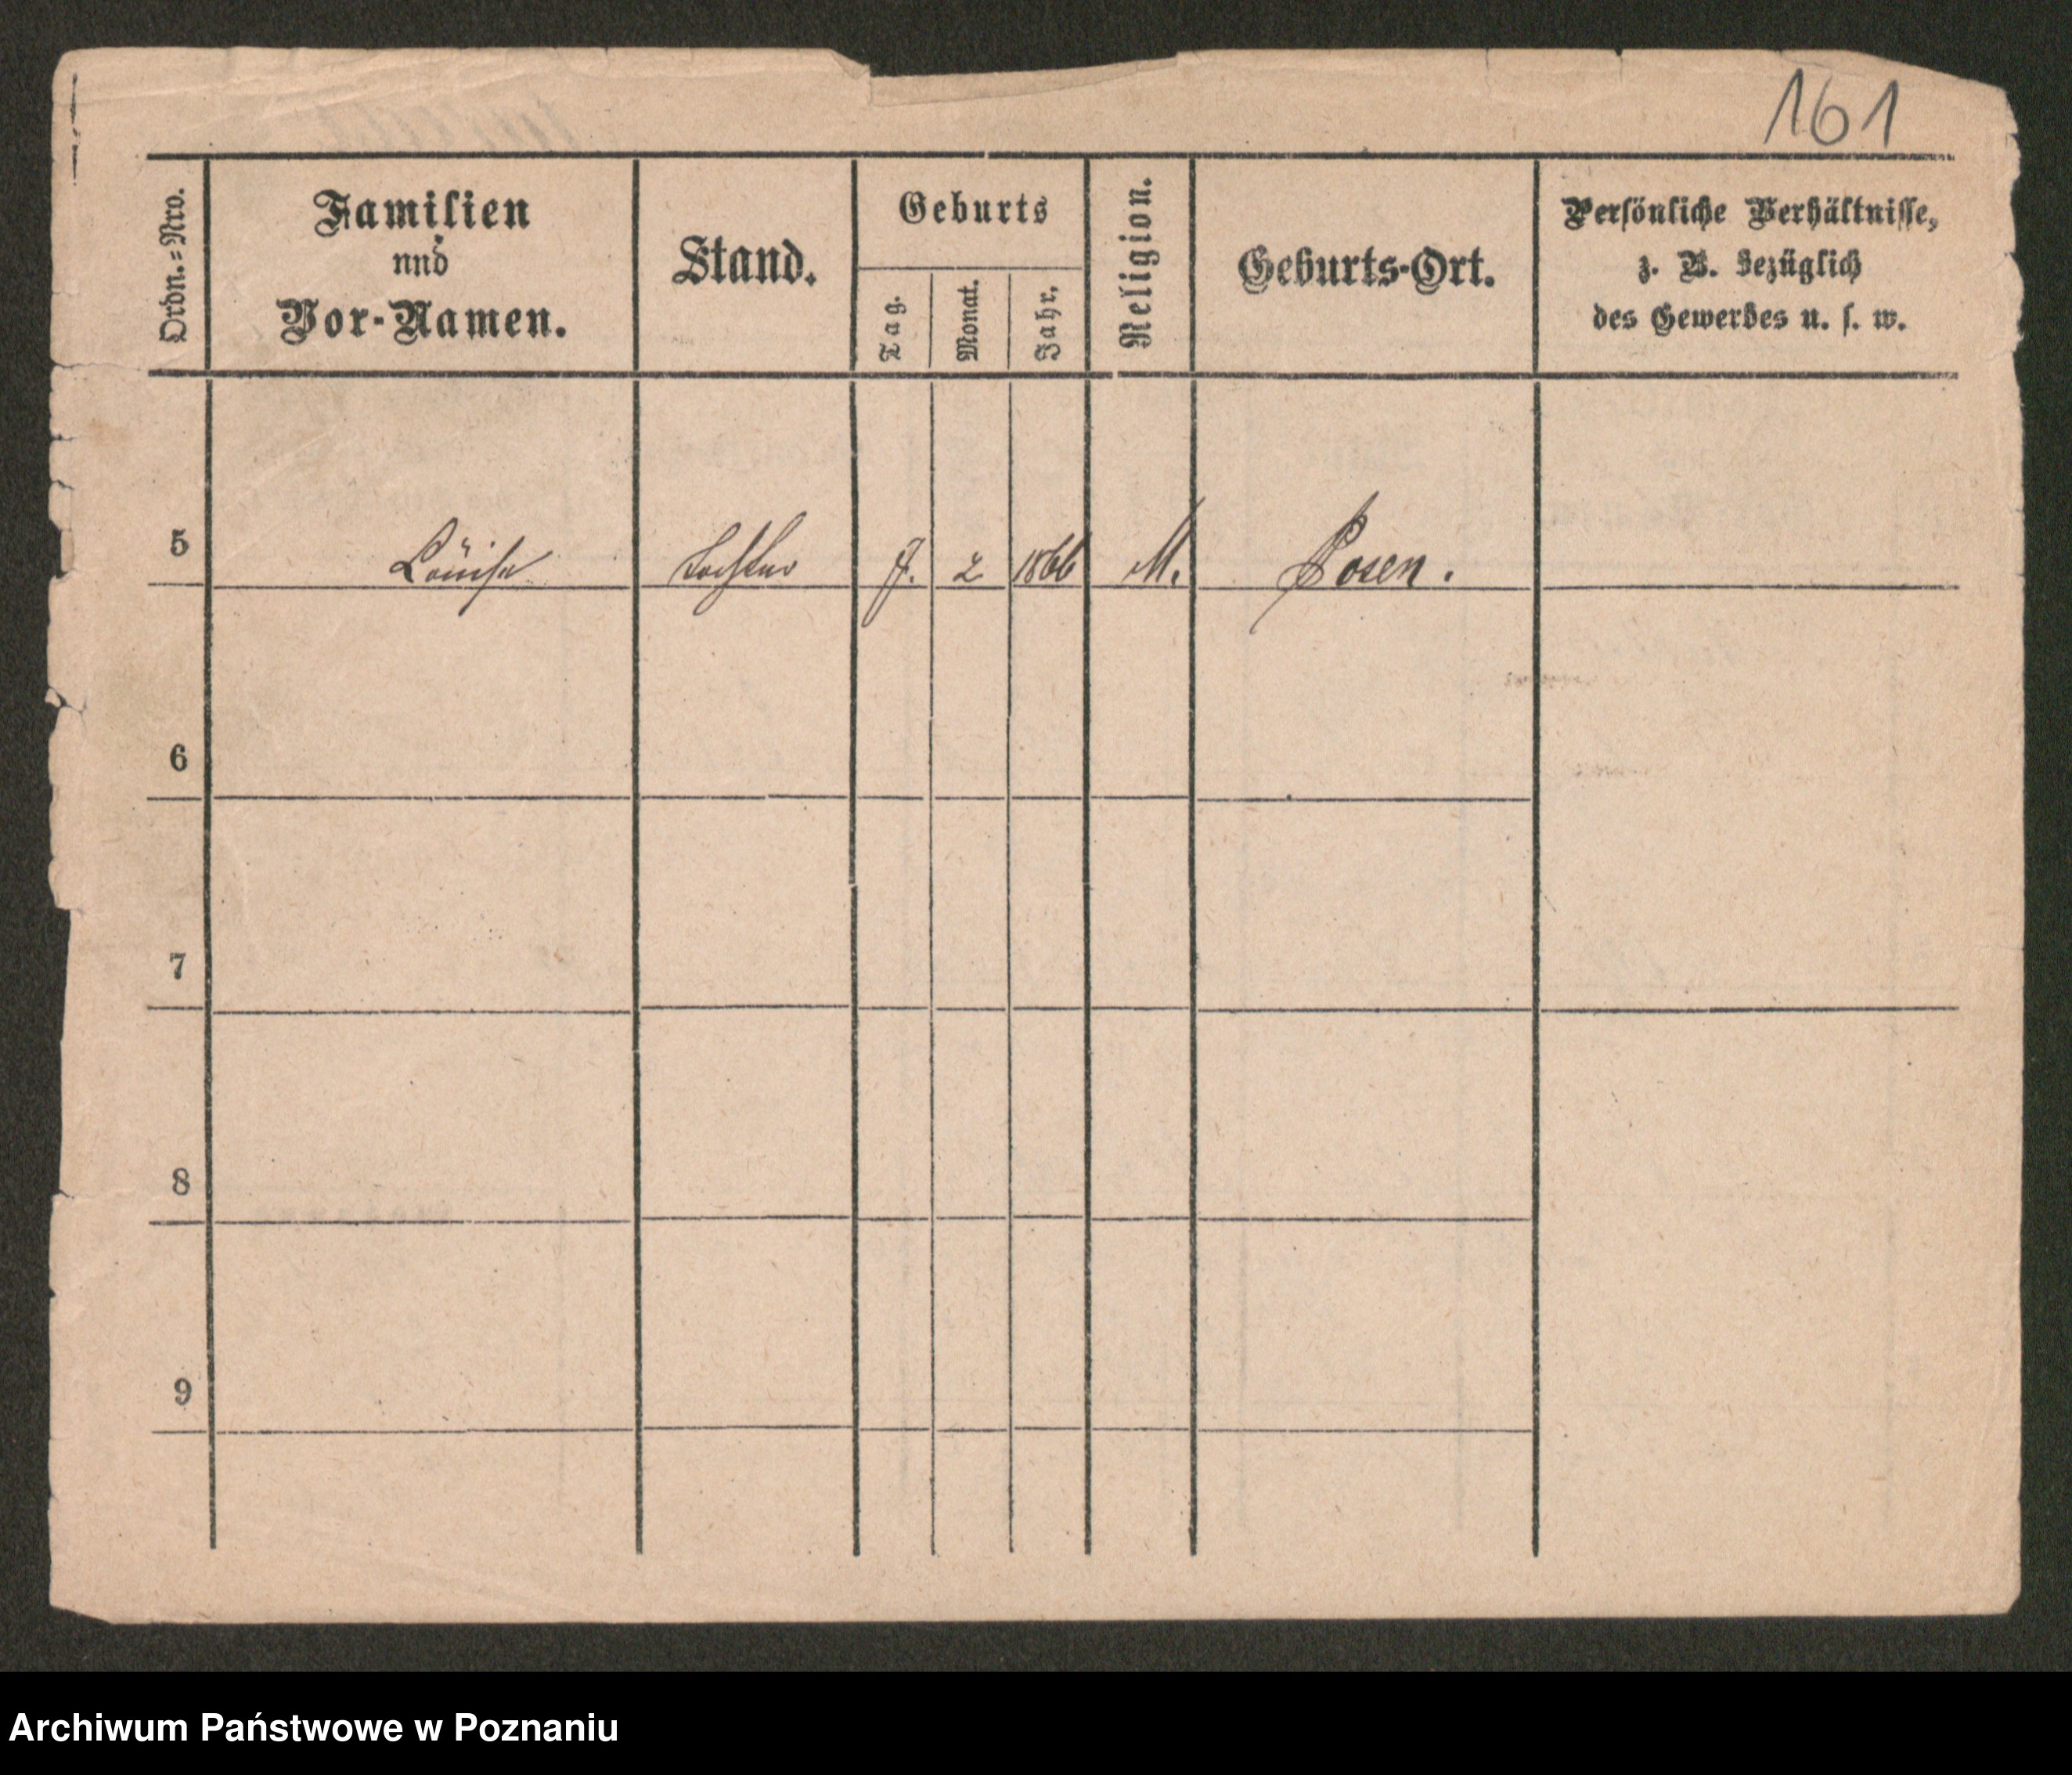 161
Ordn.=Nro.
Familien
nnd
Vor-Namen.
Stand.
Geburts
Tag.
Monat.
Jahr.
Religion.
Geburts-Ort.
Persönliche Verhältnisse,
z. B. bezüglich
des Gewerbes u. s. w.
5 Louise Tochter 2 1866 Posen.
6
7
8
9
Archiwum Państwowe w Poznaniu